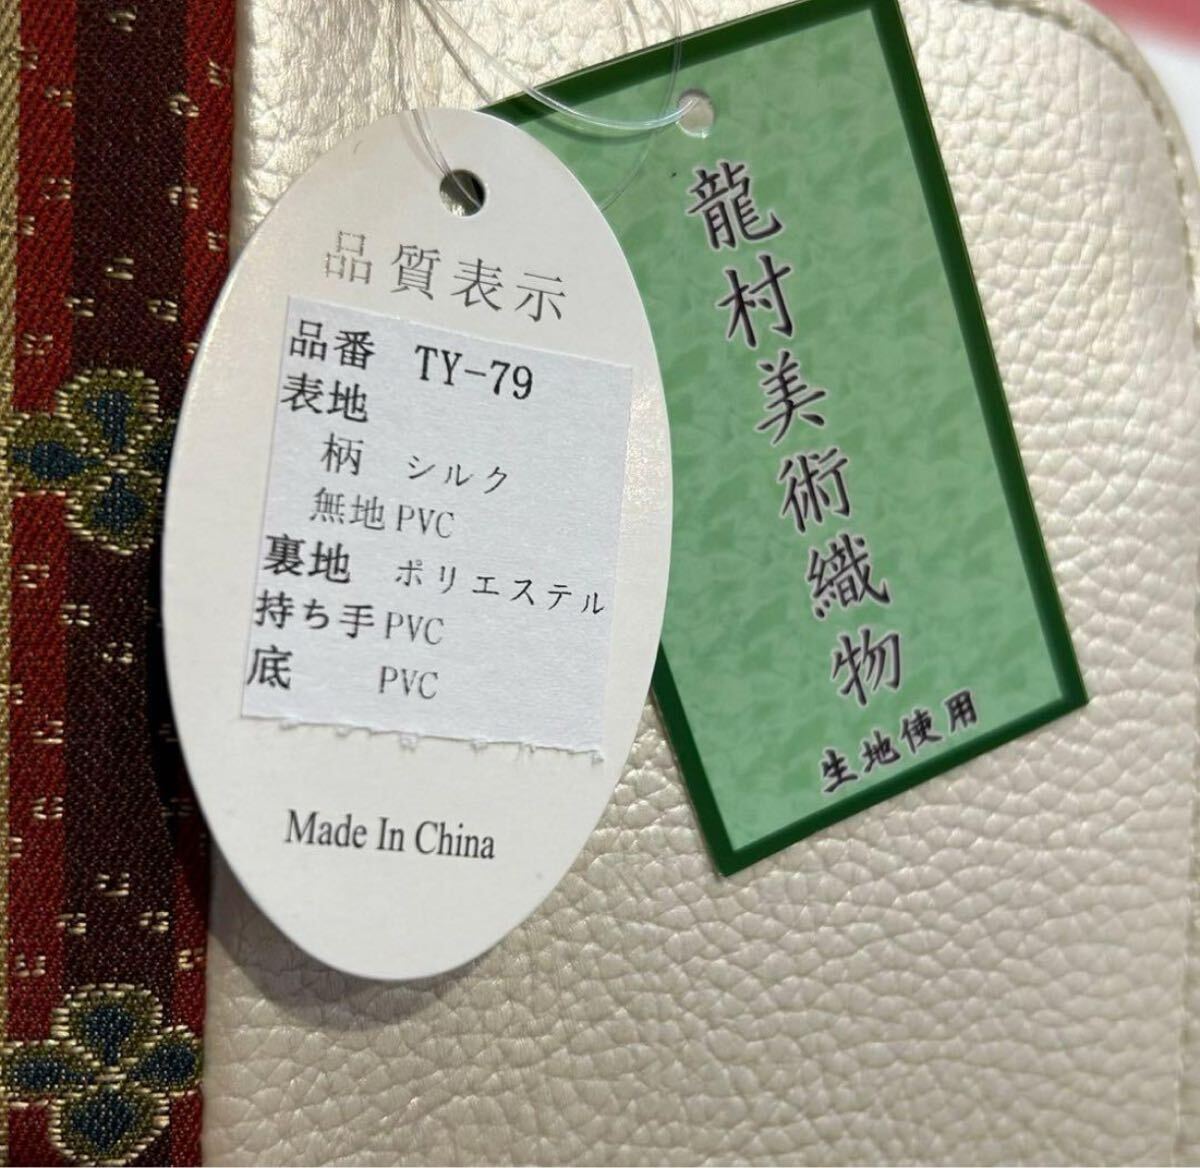 品質表示
品番 TY-79
表地
柄 シルク
無地 PVC
裏地 ポリエステル
持ち手 PVC
底 PVC
Made In China
龍村美術織物
生地使用